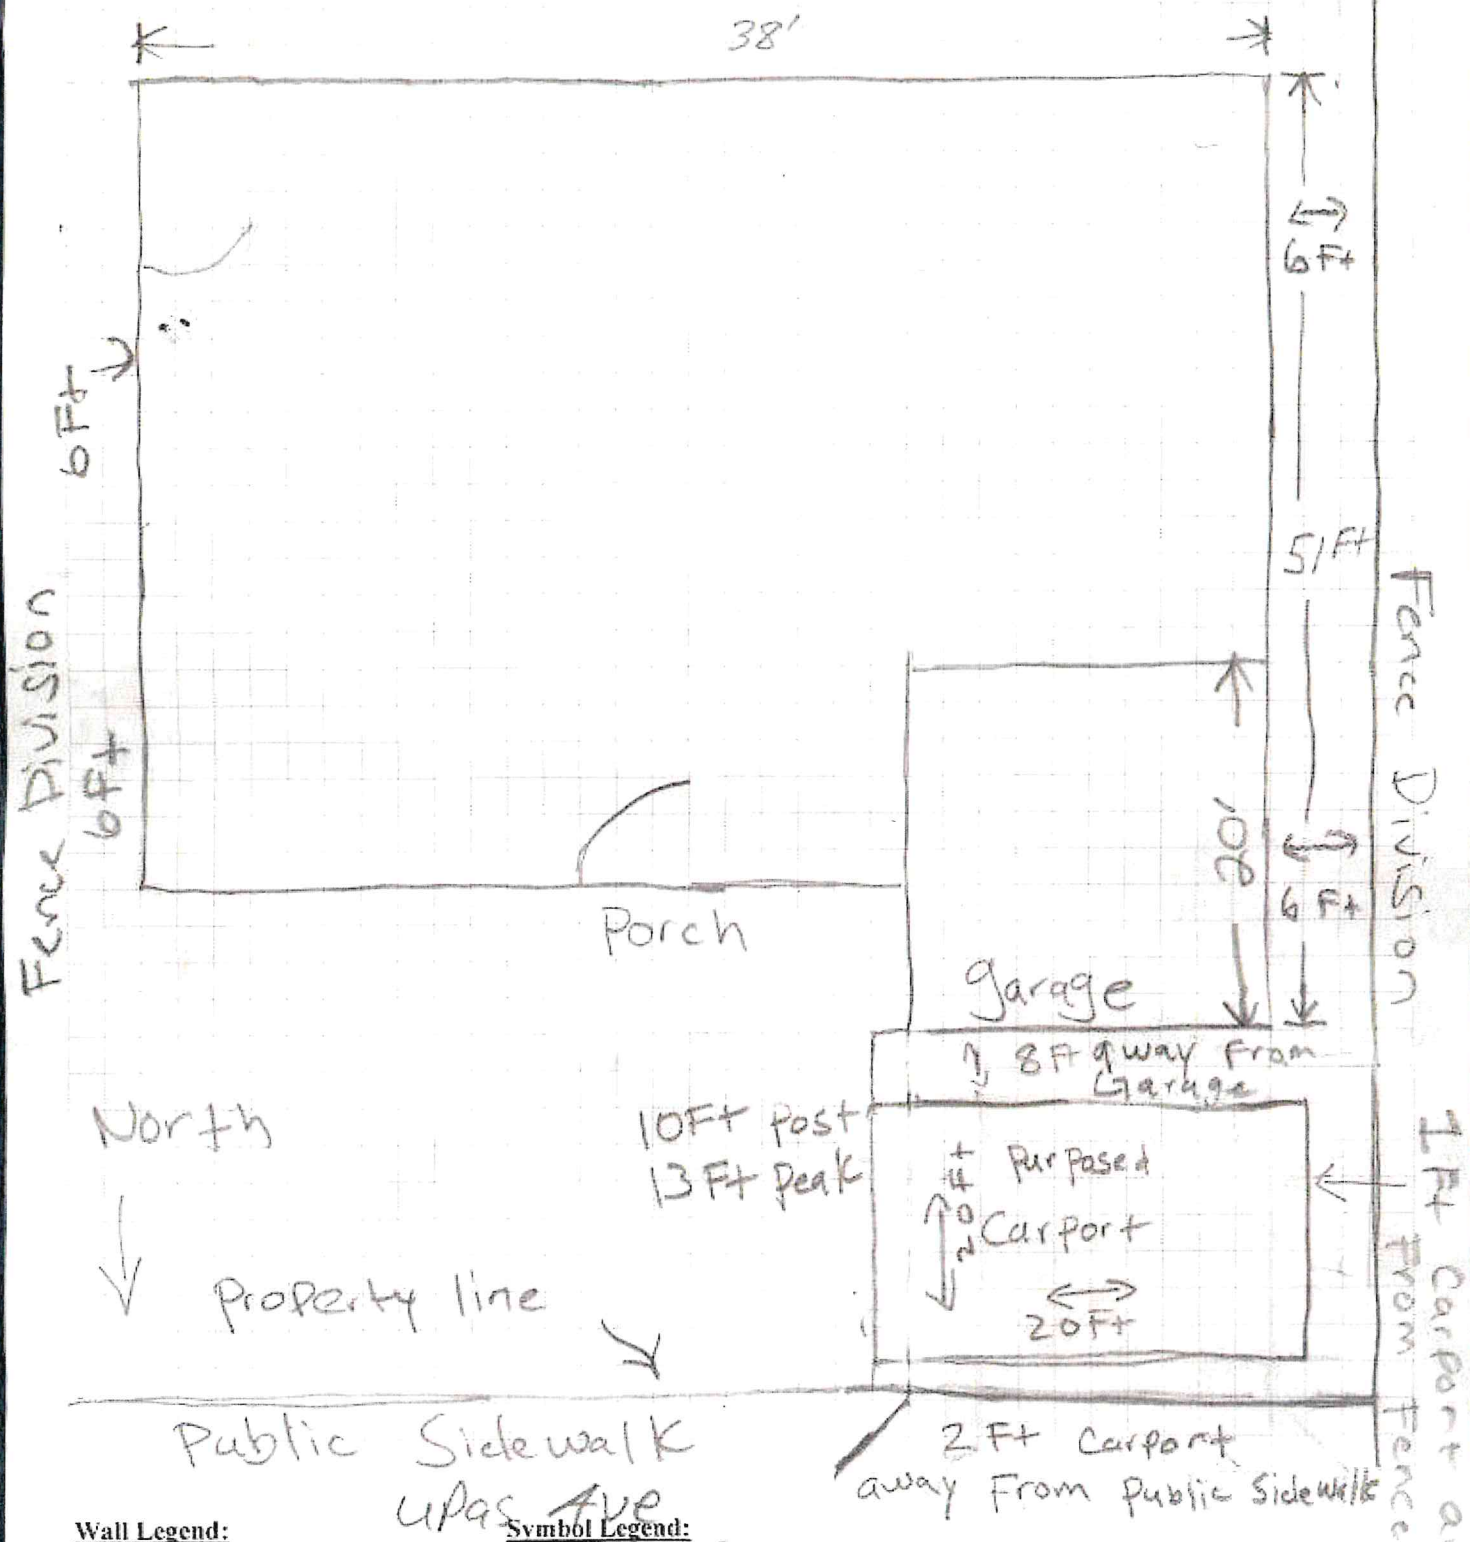 38'
6 Ft
6Ft
51 Ft
Fence Division
Fence Division
6Ft
20'
6 Ft
Porch
garage
8Ft away From
Garage
North
10Ft Post
13 Ft Peak
Purposed
Carport
20Ft
20Ft
1 Ft Carport
From Fence
Property line
Public Sidewalk
2 Ft Carport
away From Public Sidewalk
upas Ave
Wall Legend:
Symbol Legend: